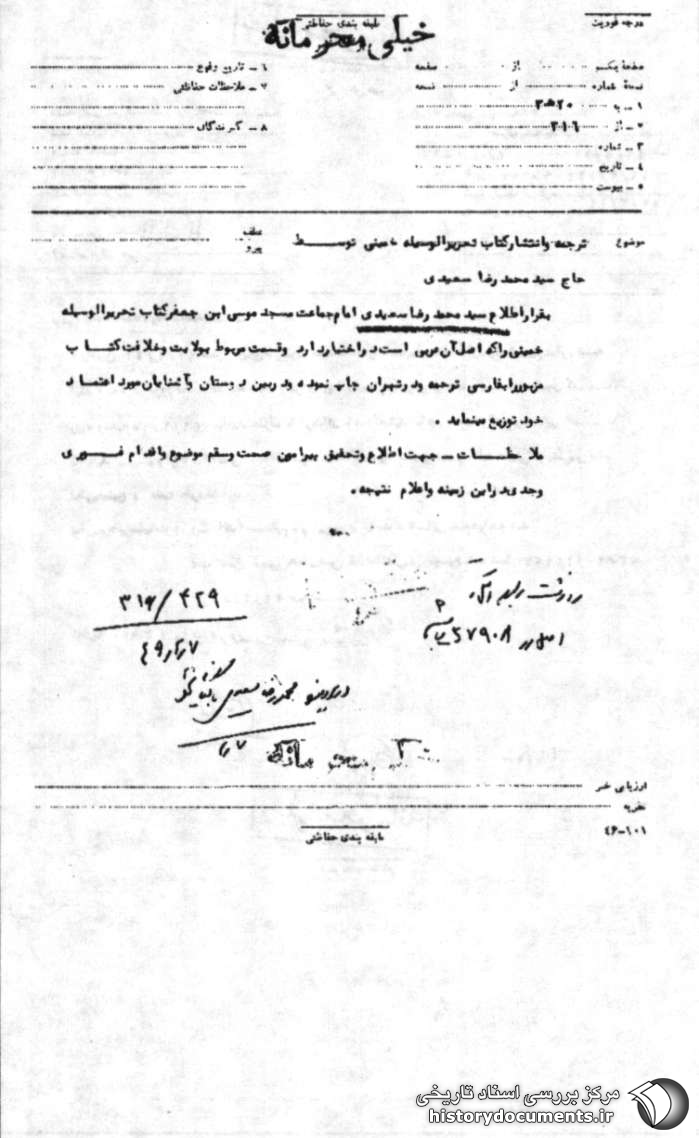 درجه فوریت
طبقه بندی حفاظتی
خیلی محرمانه
صفحه یکم از صفحه
نسخه شماره از نسخه
۱ – به ۲۰ ﻫ ۳
۲ – از ۳۱۶
۳ – شماره
۴ – تاریخ
۵ – پیوست
۶ – تاریخ وقوع
۷ – ملاحظات حفاظتی
۸ – گیرندگان
موضوع ترجمه وانتشارکتاب تحریرالوسیله خمینی توسط
عطف
پیرو
حاج سید محمد رضا سعیدی
بقراراطلاع سید محمد رضا سعیدی امام جماعت مسجد موسی ابن جعفرکتاب تحریرالوسیله
خمینی راکه اصل آن عربی است دراختیاردارد وقسمت مربوط بولایت وخلافت کتاب
مزبوررابفارسی ترجمه ودرتهران چاپ نموده ودربین دوستان وآشنایان مورد اعتماد
خود توزیع مینماید .
ملاحظات – جهت اطلاع وتحقیق پیرامون صحت وسقم موضوع واقدام فوری
وجدی دراین زمینه واعلام نتیجه .
۳۱۶/۴۲۹
۴۹٫۲٫۷
اصل در ۵۷۹۰۸
محمدرضا سعیدی
۷٫۲
ارزیابی خبر
نظریه
۴۶-۱۰۱
طبقه بندی حفاظتی
مرکز بررسی اسناد تاریخی
historydocuments.ir